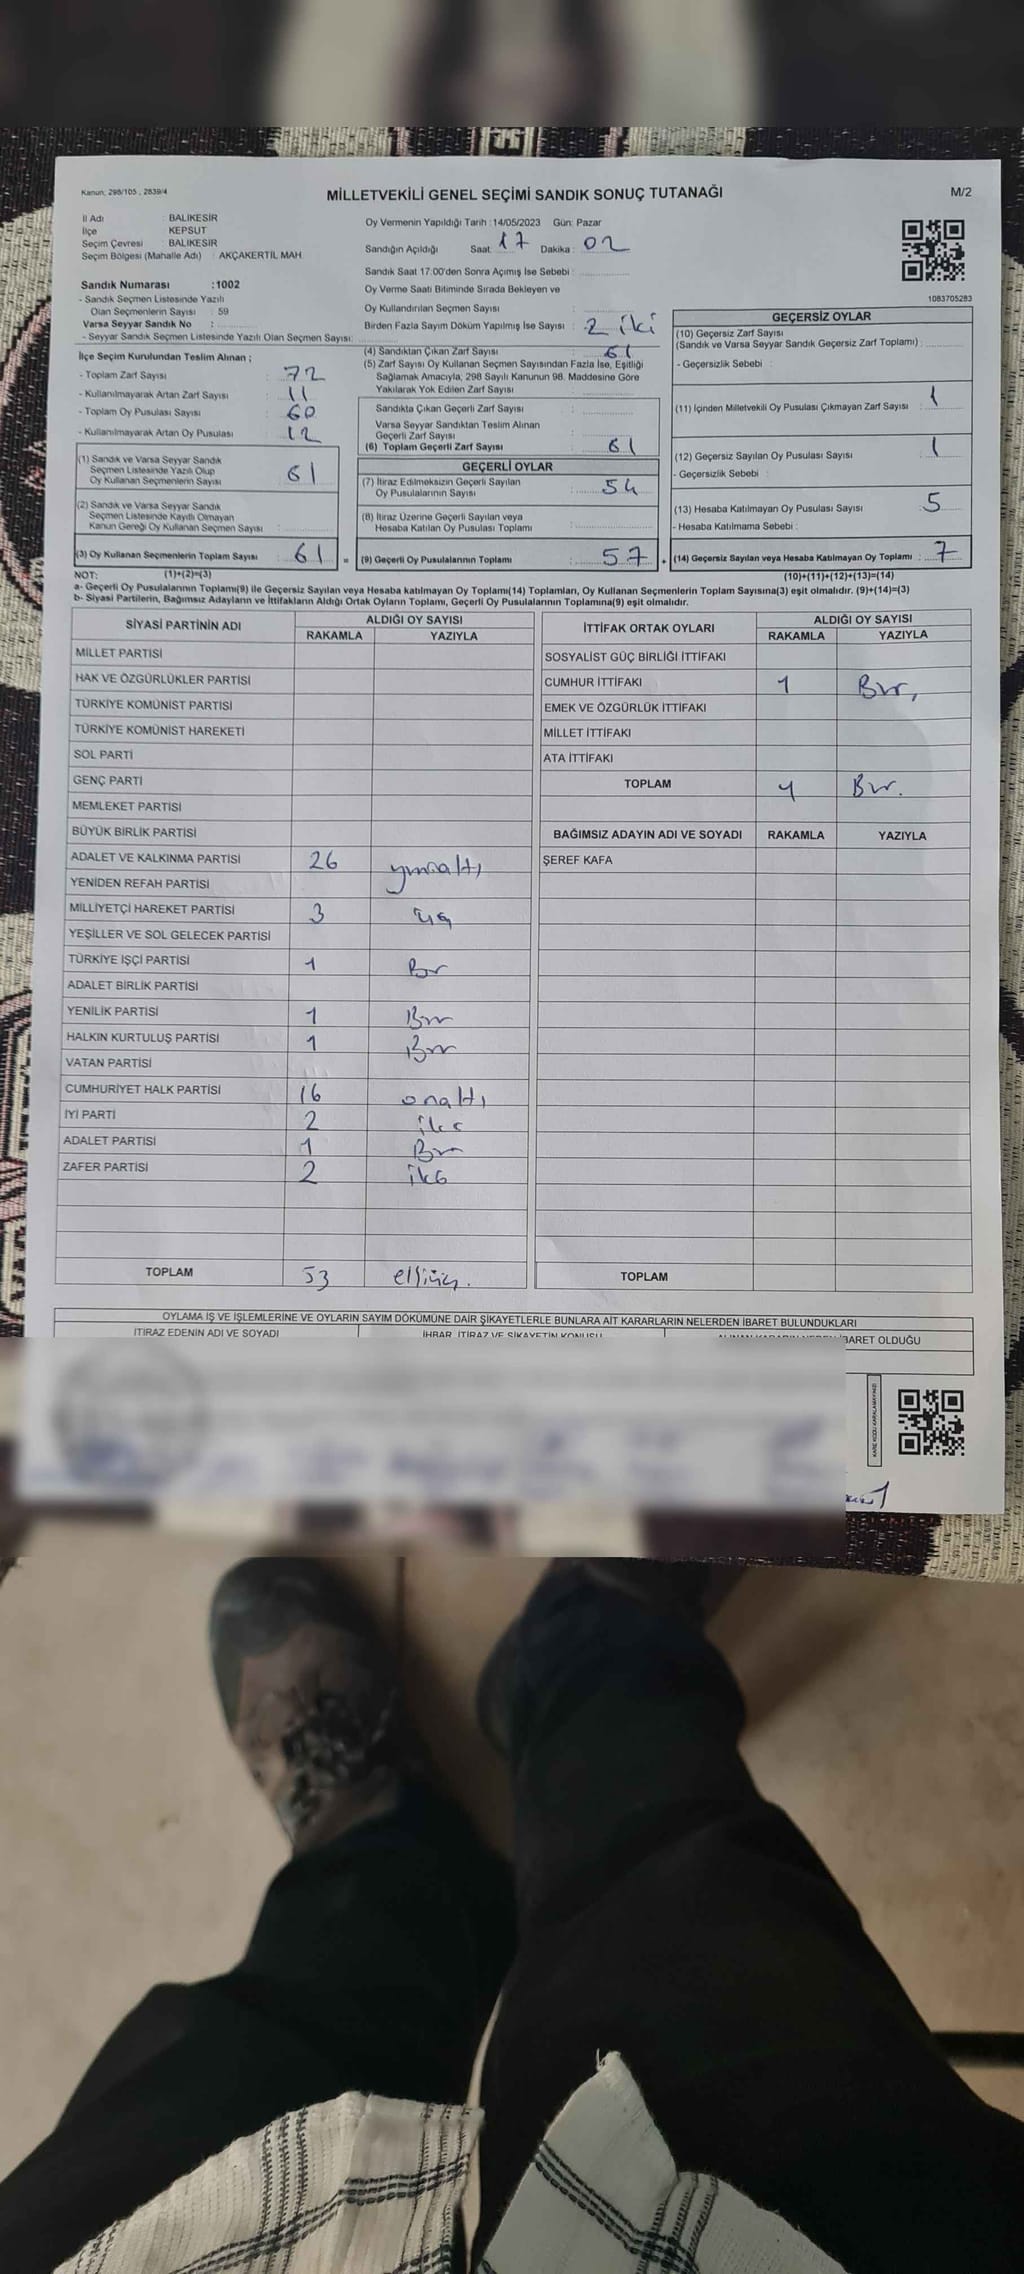 Kanun; 298/105 , 2839/4
MİLLETVEKİLİ GENEL SEÇİMİ SANDIK SONUÇ TUTANAĞI
M/2
İl Adı : BALIKESİR
İlçe : KEPSUT
Seçim Çevresi : BALIKESİR
Seçim Bölgesi (Mahalle Adı) : AKÇAKERTİL MAH.
Sandık Numarası :1002
- Sandık Seçmen Listesinde Yazılı
Olan Seçmenlerin Sayısı : 59
Varsa Seyyar Sandık No :
- Seyyar Sandık Seçmen Listesinde Yazılı Olan Seçmen Sayısı:
Oy Vermenin Yapıldığı Tarih :14/05/2023 Gün: Pazar
Sandığın Açıldığı Saat: 17 Dakika: 02
Sandık Saat 17:00'den Sonra Açımış İse Sebebi :
Oy Verme Saati Bitiminde Sırada Bekleyen ve
Oy Kullandırılan Seçmen Sayısı :
Birden Fazla Sayım Döküm Yapılmış İse Sayısı : 2 iki
1083705283
İlçe Seçim Kurulundan Teslim Alınan ;
- Toplam Zarf Sayısı : 72
- Kullanılmayarak Artan Zarf Sayısı : 11
- Toplam Oy Pusulası Sayısı : 60
- Kullanılmayarak Artan Oy Pusulası : 12
(1) Sandık ve Varsa Seyyar Sandık
Seçmen Listesinde Yazılı Olup
Oy Kullanan Seçmenlerin Sayısı : 61
(2) Sandık ve Varsa Seyyar Sandık
Seçmen Listesinde Kayıtlı Olmayan
Kanun Gereği Oy Kullanan Seçmen Sayısı :
(3) Oy Kullanan Seçmenlerin Toplam Sayısı : 61
(1)+(2)=(3)
(4) Sandıktan Çıkan Zarf Sayısı : 61
(5) Zarf Sayısı Oy Kullanan Seçmen Sayısından Fazla İse, Eşitliği
Sağlamak Amacıyla, 298 Sayılı Kanunun 98. Maddesine Göre
Yakılarak Yok Edilen Zarf Sayısı :
Sandıkta Çıkan Geçerli Zarf Sayısı :
Varsa Seyyar Sandıktan Teslim Alınan
Geçerli Zarf Sayısı :
(6) Toplam Geçerli Zarf Sayısı : 61
GEÇERLİ OYLAR
(7) İtiraz Edilmeksizin Geçerli Sayılan
Oy Pusulalarının Sayısı : 54
(8) İtiraz Üzerine Geçerli Sayılan veya
Hesaba Katılan Oy Pusulası Toplamı :
= (9) Geçerli Oy Pusulalarının Toplamı : 57 +
GEÇERSİZ OYLAR
(10) Geçersiz Zarf Sayısı
(Sandık ve Varsa Seyyar Sandık Geçersiz Zarf Toplamı) :
- Geçersizlik Sebebi :
(11) İçinden Milletvekili Oy Pusulası Çıkmayan Zarf Sayısı : 1
(12) Geçersiz Sayılan Oy Pusulası Sayısı : 1
- Geçersizlik Sebebi :
(13) Hesaba Katılmayan Oy Pusulası Sayısı : 5
- Hesaba Katılmama Sebebi :
(14) Geçersiz Sayılan veya Hesaba Katılmayan Oy Toplamı : 7
(10)+(11)+(12)+(13)=(14)
NOT:
a- Geçerli Oy Pusulalarının Toplamı(9) ile Geçersiz Sayılan veya Hesaba katılmayan Oy Toplamı(14) Toplamları, Oy Kullanan Seçmenlerin Toplam Sayısına(3) eşit olmalıdır. (9)+(14)=(3)
b- Siyasi Partilerin, Bağımsız Adayların ve İttifakların Aldığı Ortak Oyların Toplamı, Geçerli Oy Pusulalarının Toplamına(9) eşit olmalıdır.
SİYASİ PARTİNİN ADI
ALDIĞI OY SAYISI
RAKAMLA YAZIYLA
MİLLET PARTİSİ
HAK VE ÖZGÜRLÜKLER PARTİSİ
TÜRKİYE KOMÜNİST PARTİSİ
TÜRKİYE KOMÜNİST HAREKETİ
SOL PARTİ
GENÇ PARTİ
MEMLEKET PARTİSİ
BÜYÜK BİRLİK PARTİSİ
ADALET VE KALKINMA PARTİSİ 26 yirmialtı
YENİDEN REFAH PARTİSİ
MİLLİYETÇİ HAREKET PARTİSİ 3 üç
YEŞİLLER VE SOL GELECEK PARTİSİ
TÜRKİYE İŞÇİ PARTİSİ 1 Bir
ADALET BİRLİK PARTİSİ
YENİLİK PARTİSİ 1 Bir
HALKIN KURTULUŞ PARTİSİ 1 Bir
VATAN PARTİSİ
CUMHURİYET HALK PARTİSİ 16 onaltı
İYİ PARTİ 2 iki
ADALET PARTİSİ 1 Bir
ZAFER PARTİSİ 2 iki
TOPLAM 53 elliüç.
İTTİFAK ORTAK OYLARI
ALDIĞI OY SAYISI
RAKAMLA YAZIYLA
SOSYALİST GÜÇ BİRLİĞİ İTTİFAKI
CUMHUR İTTİFAKI 1 Bir,
EMEK VE ÖZGÜRLÜK İTTİFAKI
MİLLET İTTİFAKI
ATA İTTİFAKI
TOPLAM 1 Bir.
BAĞIMSIZ ADAYIN ADI VE SOYADI RAKAMLA YAZIYLA
ŞEREF KAFA
TOPLAM
OYLAMA İŞ VE İŞLEMLERİNE VE OYLARIN SAYIM DÖKÜMÜNE DAİR ŞİKAYETLERLE BUNLARA AİT KARARLARIN NELERDEN İBARET BULUNDUKLARI
İTİRAZ EDENİN ADI VE SOYADI
İHBAR, İTİRAZ VE ŞİKAYETİN KONUSU
İBARET OLDUĞU
KARE KODU KARALAMAYINIZ!